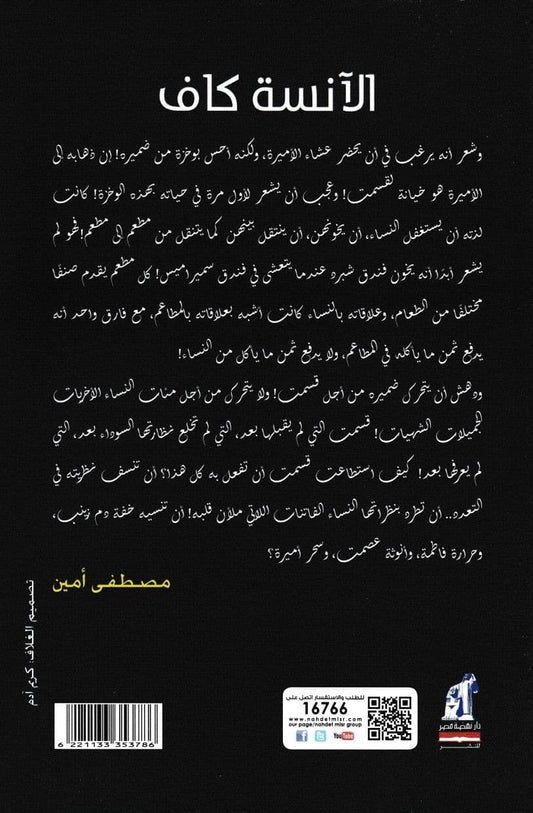 الآنسة كاف
وشعر أنه يرغب في أن يحضر عشاء الأميرة، ولكنه أحس بوخزة من ضميره! إن ذهابه إلى
الأميرة هو خيانة لقسمت! وعجب أن يشعر لأول مرة في حياته بهذه الوخزة! كانت
لذته أن يستغفل النساء، أن يخونهن، أن ينتقل بينهن كما يتنقل من مطعم إلى مطعم! فهو لم
يشعر أبدًا أنه يخون فندق شبرد عندما يتعشى في فندق سميراميس! كل مطعم يقدم صنفًا
مختلفًا من الطعام، وعلاقاته بالنساء كانت أشبه بعلاقاته بالمطاعم، مع فارق واحد أنه
يدفع ثمن ما يأكله في المطاعم، ولا يدفع ثمن ما يأكل من النساء!
ودهش أن يتحرك ضميره من أجل قسمت! ولا يتحرك من أجل مئات النساء الأخريات
الجميلات الشهيات! قسمت التي لم يقبلها بعد، التي لم تخلع نظارتها السوداء بعد، التي
لم يعرفها بعد! كيف استطاعت قسمت أن تفعل به كل هذا؟ أن تنسف نظريته في
التعدد.. أن تطرد بنظراتها النساء الفاتنات اللاتي ملأن قلبه! أن تنسيه خفة دم زينب،
وحرارة فاطمة، وأنوثة عصمت، وسحر أميرة؟
مصطفى أمين
تصميم الغلاف: كريم آدم
6 221133 353786
للطلب والاستفسار اتصل على
16766
www.nahdetmisr.com
our page/nahdet misr group
You Tube
دار نهضة مصر
للنشر